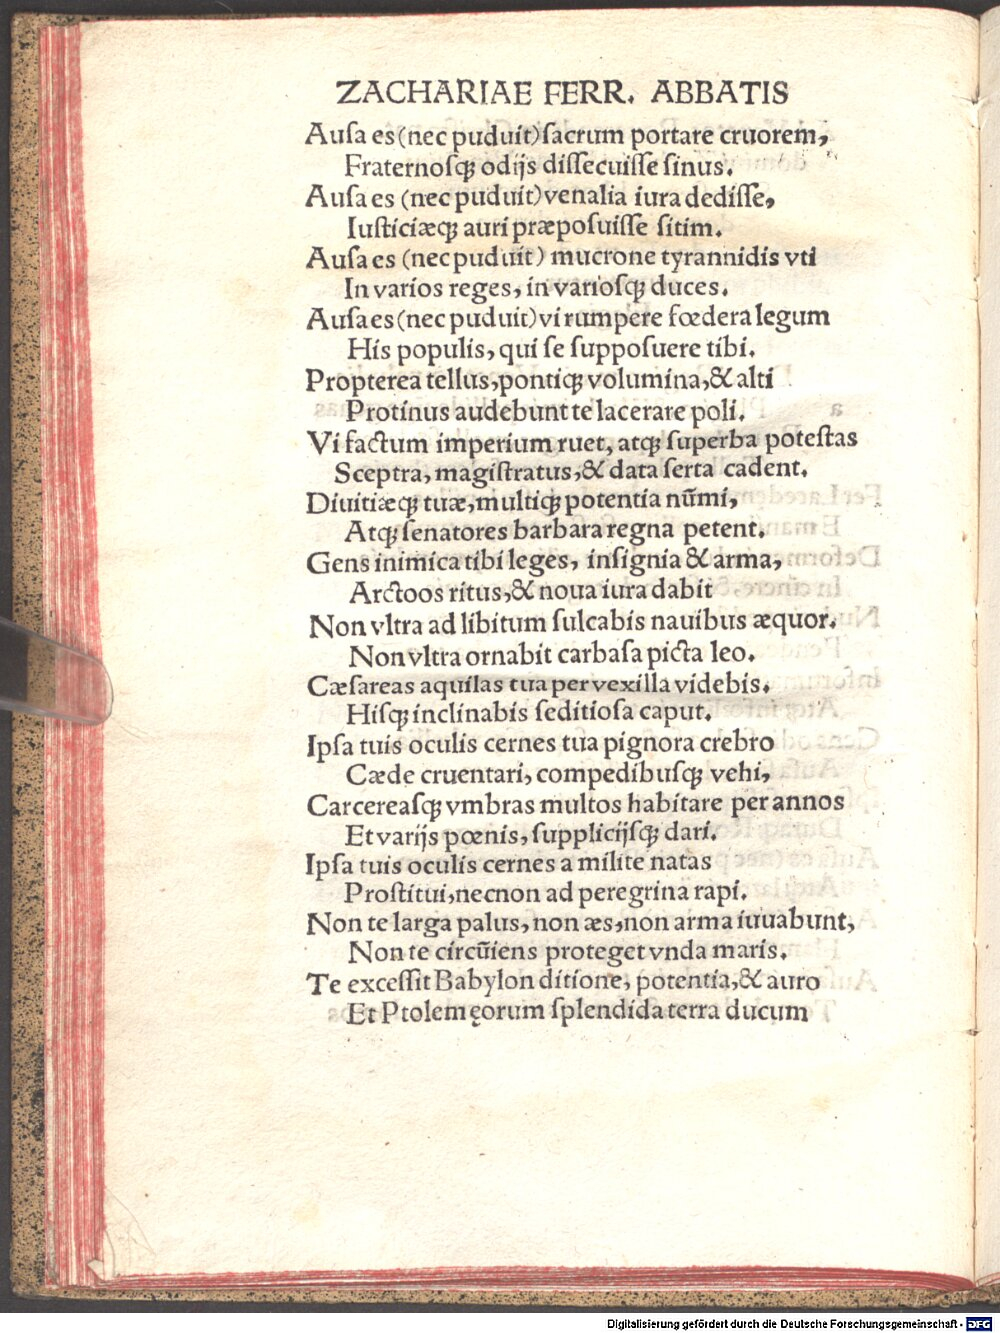 ZACHARIAE FERR. ABBATIS
Auſa es (nec puduit) ſacrum portare cruorem,
Fraternoſqꝫ odijs diſſecuiſſe ſinus.
Auſa es (nec puduit) venalia iura dediſſe,
Iuſticiæqꝫ auri præpoſuiſſe ſitim.
Auſa es (nec puduit) mucrone tyrannidis vti
In varios reges, in varioſqꝫ duces.
Auſa es (nec puduit) vi rumpere fœdera legum
His populis, qui ſe ſuppoſuere tibi.
Propterea tellus, pontiqꝫ volumina, & alti
Protinus audebunt te lacerare poli.
Vi factum imperium ruet, atqꝫ ſuperba poteſtas
Sceptra, magiſtratus, & data ſerta cadent.
Diuitiæqꝫ tuæ, multiqꝫ potentia nūmi,
Atqꝫ ſenatores barbara regna petent.
Gens inimica tibi leges, inſignia & arma,
Arctoos ritus, & noua iura dabit
Non vltra ad libitum ſulcabis nauibus æquor.
Non vltra ornabit carbaſa picta leo.
Cæſareas aquilas tua per vexilla videbis.
Hiſqꝫ inclinabis ſeditioſa caput.
Ipſa tuis oculis cernes tua pignora crebro
Cæde cruentari, compedibuſqꝫ vehi,
Carcereaſqꝫ vmbras multos habitare per annos
Et varijs pœnis, ſupplicijſqꝫ dari.
Ipſa tuis oculis cernes a milite natas
Proſtitui, necnon ad peregrina rapi.
Non te larga palus, non æs, non arma iuuabunt,
Non te circūiens proteget vnda maris.
Te exceſſit Babylon ditione, potentia, & auro
Et Ptolemęorum ſplendida terra ducum
Digitalisierung gefördert durch die Deutsche Forschungsgemeinschaft - DFG